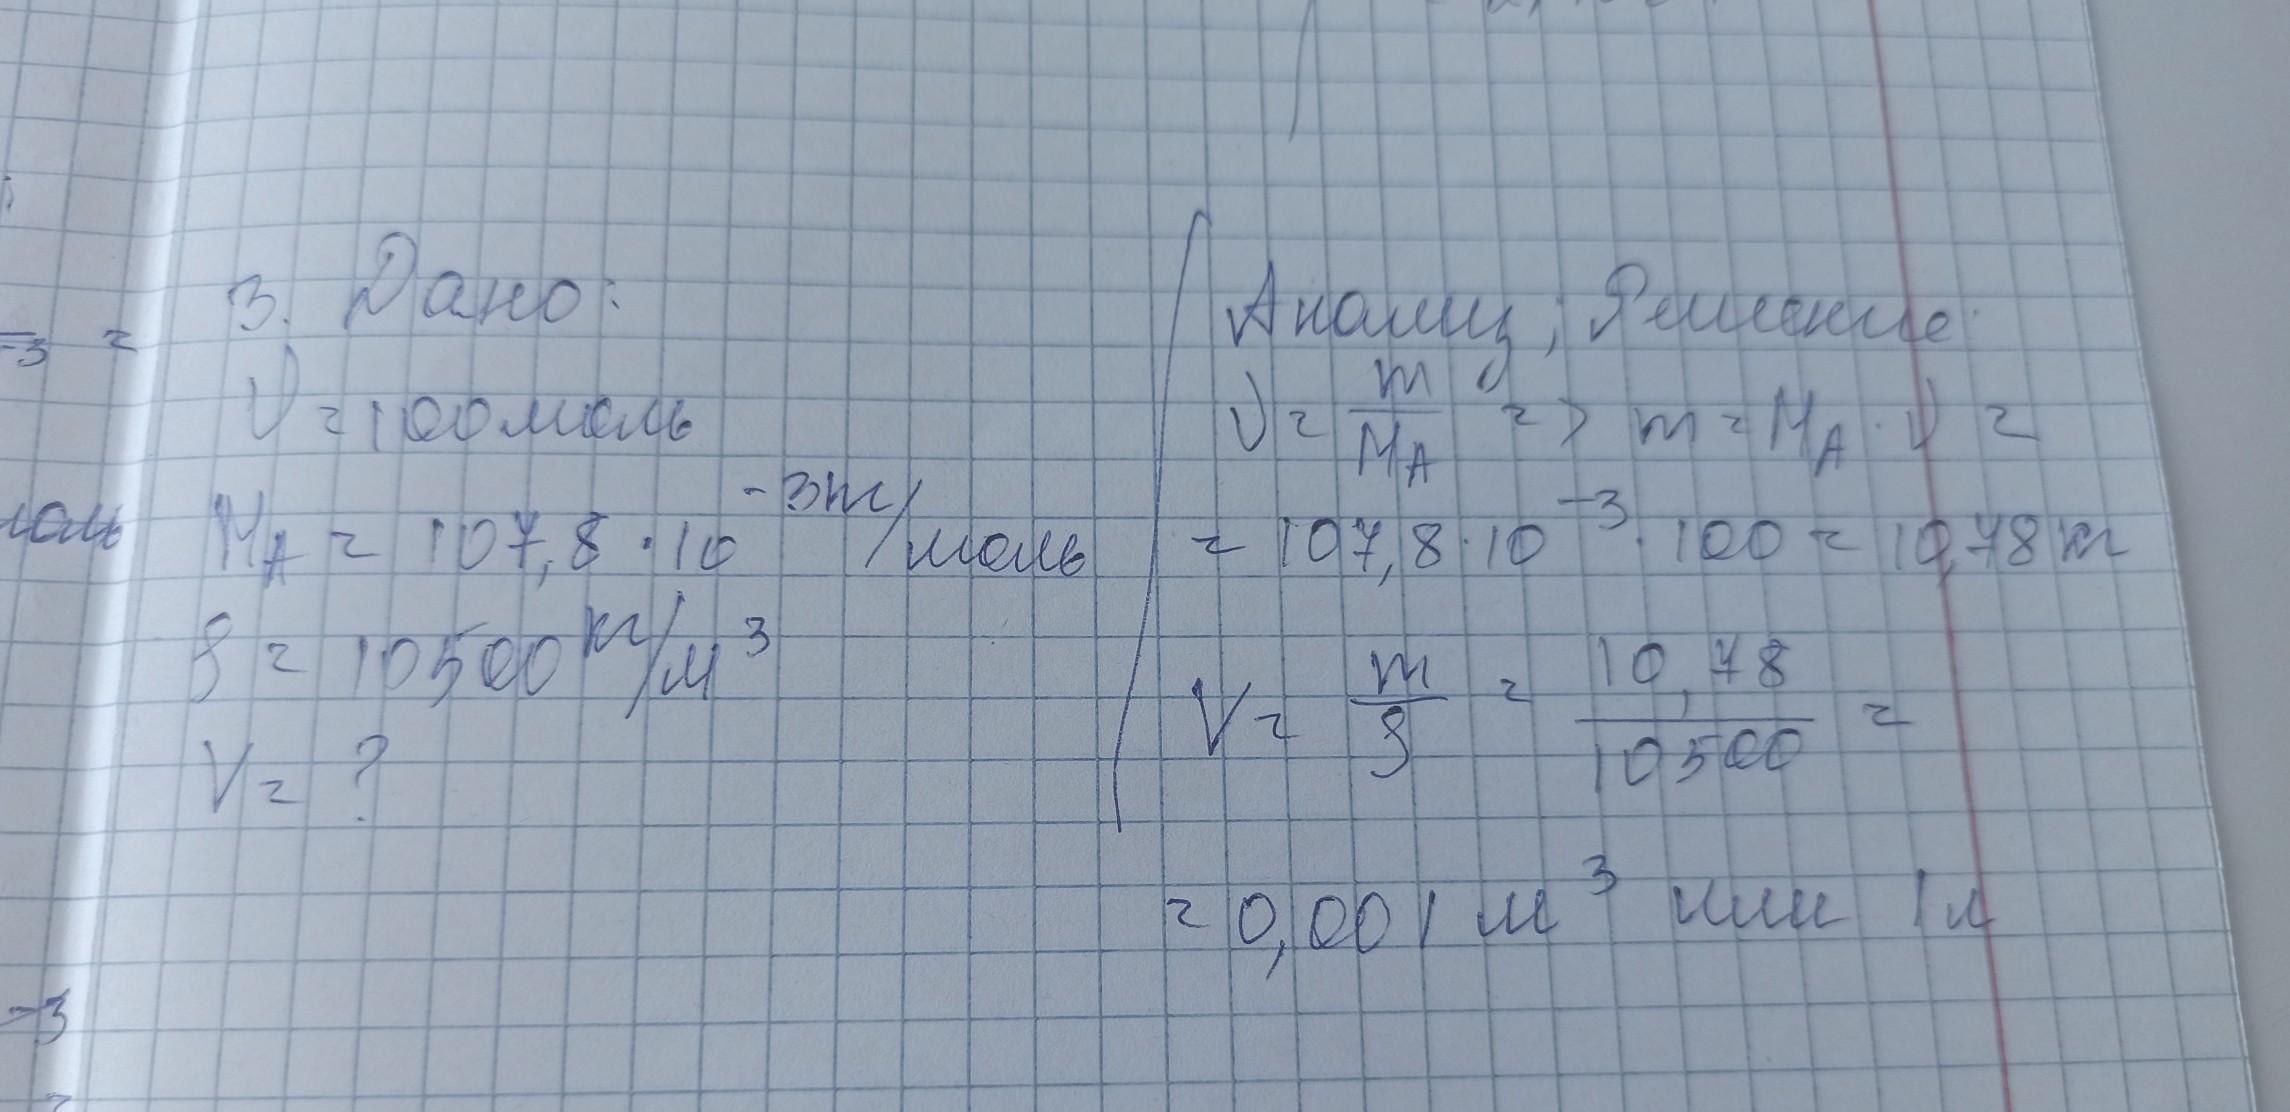 3. Дано:
ν = 100 моль
M_A = 107,8 · 10^-3 кг/моль
ρ = 10500 кг/м^3
V = ?
Анализ; Решение:
ν = m/M_A => m = M_A · ν =
= 107,8 · 10^-3 · 100 = 10,78 кг
V = m/ρ = 10,78/10500 =
= 0,001 м^3 или 1 л
-3 =
моль
-3